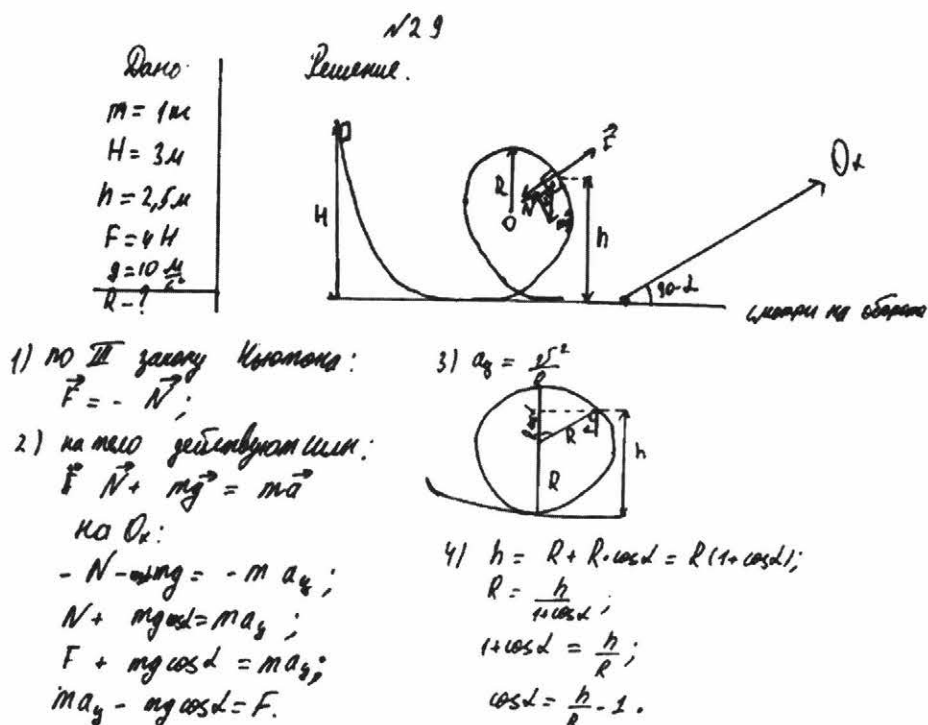 №29
Дано:
Решение.
m = 1 кг
H = 3 м
h = 2,5 м
F = 4 Н
g = 10 м/с²
R - ?
H
R
O
N
F
mg
h
Ox
90-α
смотри на обороте
1) по III закону Ньютона:
F⃗ = - N⃗;
2) на тело действуют силы:
N⃗ + mg⃗ = ma⃗
на Ox:
- N - mg = - m aц;
N + mg cosα = m aц;
F + mg cosα = m aц;
m aц - mg cosα = F.
3) aц = v²/R
R
R
h
4) h = R + R·cosα = R(1+cosα);
R = h/(1+cosα);
1+cosα = h/R;
cosα = h/R - 1.